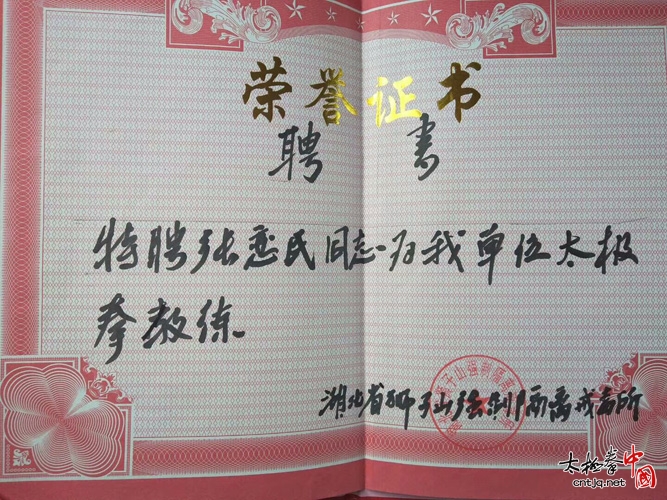 荣誉证书
聘 书
特聘张恋民同志为我单位太极
拳教练
湖北省狮子山强制隔离戒毒所
太极拳中國
cntjq.net